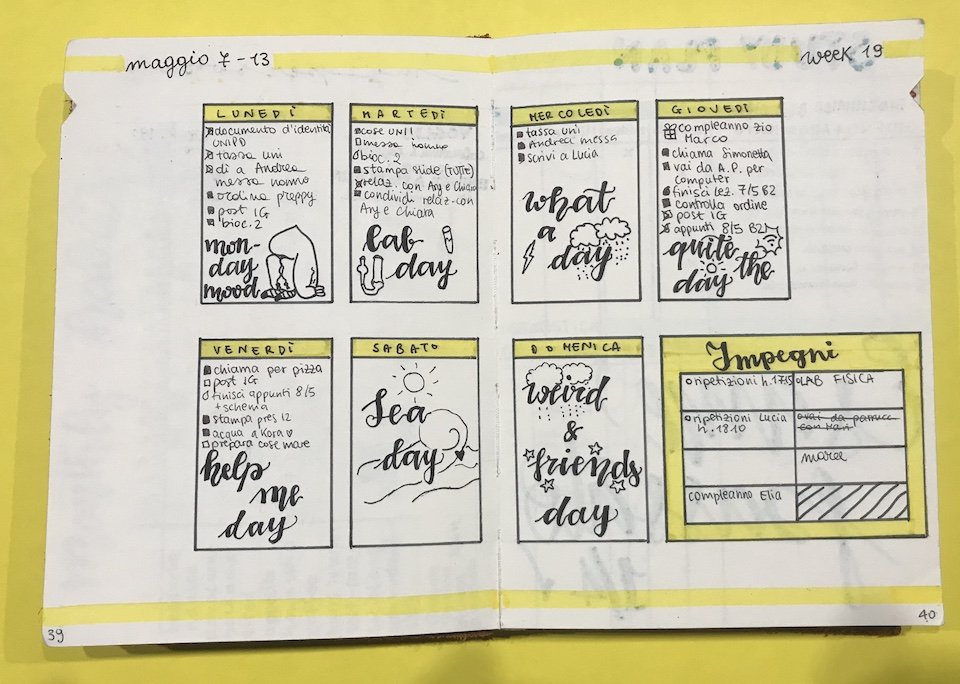 maggio 7-13
week 19
LUNEDÌ
documento d'identità
UNIPD
tassa uni
dì a Andrea
messa nonno
ordina preppy
post IG
bioc. 2
mon-
day
mood
MARTEDÌ
cose UNI!
messa nonno
bioc. 2
stampa slide (TUTTE)
relaz. con Any e Chiara
condividi relaz. con
Any e Chiara
lab
day
MERCOLEDÌ
tassa uni
Andrea messa
scrivi a Lucia
what
a
day
GIOVEDÌ
compleanno zio
Marco
chiama Simonetta
vai da A.P. per
computer
finisci lez. 7/5 B2
controlla ordine
post IG
appunti 8/5 B2
quite
the
day
VENERDÌ
chiama per pizza
post IG
finisci appunti 8/5
+ schema
stampa pres 12
acqua a Kora
prepara cose mare
help
me
day
SABATO
Sea
day
DOMENICA
weird
&
friends
day
Impegni
ripetizioni h. 1715
LAB FISICA
ripetizioni Lucia
h. 1810
vai da
con
compleanno Elia
39
40